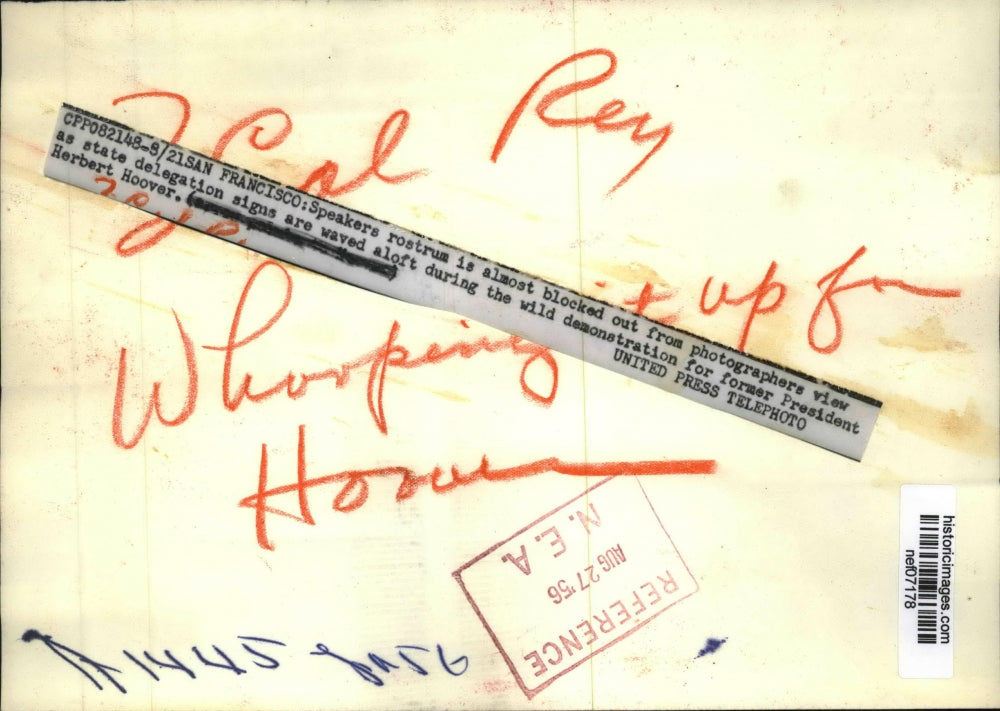 Col Rey
CPP082148-8/21SAN FRANCISCO:Speakers rostrum is almost blocked out from photographers view
as state delegation signs are waved aloft during the wild demonstration for former President
Herbert Hoover.
UNITED PRESS TELEPHOTO
Whooping it up for
Hoover
N. E. A.
AUG 27 '56
REFERENCE
historicimages.com
nef07178